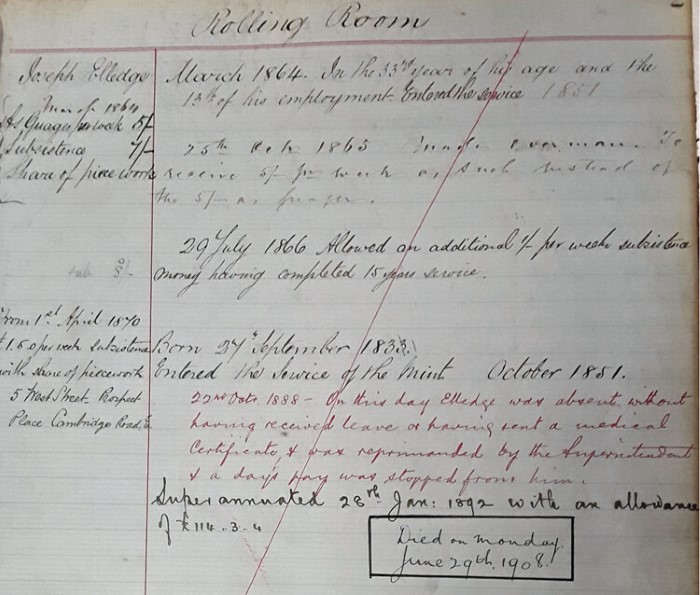 Rolling Room
Joseph Elledge
March 1864
As Guager per week 5/-
Subsistence 7/-
Share of piecework
March 1864. In the 33rd year of his age and the
13th of his employment. Entered the service 1851
25th Octr 1865 Made overman. To
receive 5/- per week as such instead of
the 5/- as guager.
29 July 1866 Allowed an additional 1/- per week subsistence
money having completed 15 years service.
sub 8/-
From 1st April 1870
£1.5.0 per week subsistence
with share of piecework
5 West Street Prospect
Place Cambridge Road, E.
Born 27th September 1833.
Entered the Service of the Mint October 1851.
22nd Octr. 1888 – On this day Elledge was absent without
having received leave or having sent a medical
Certificate, & was reprimanded by the Superintendent
& a day's pay was stopped from him.
Superannuated 28th Jan: 1892 with an allowance
of £114..3..4
Died on Monday
June 29th. 1908.